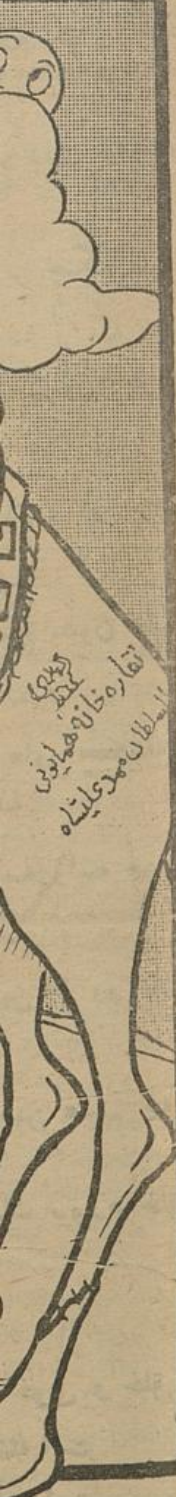 نقاره خانه همایونی
السلطان محمد علیشاه